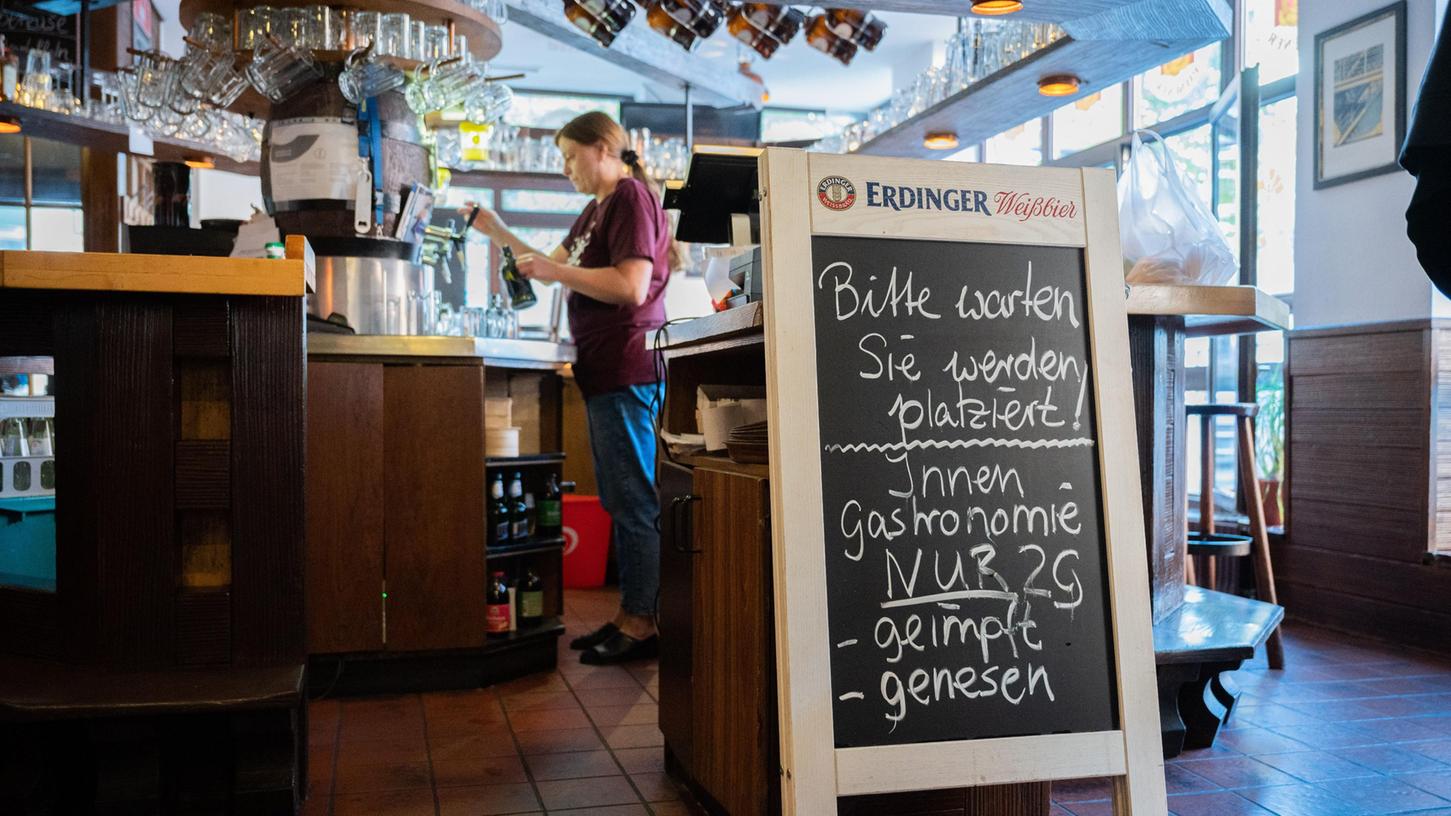 ERDINGER Weißbier
Bitte warten
Sie werden
platziert!
Innen
Gastronomie
NUR 2G
- geimpft
- genesen